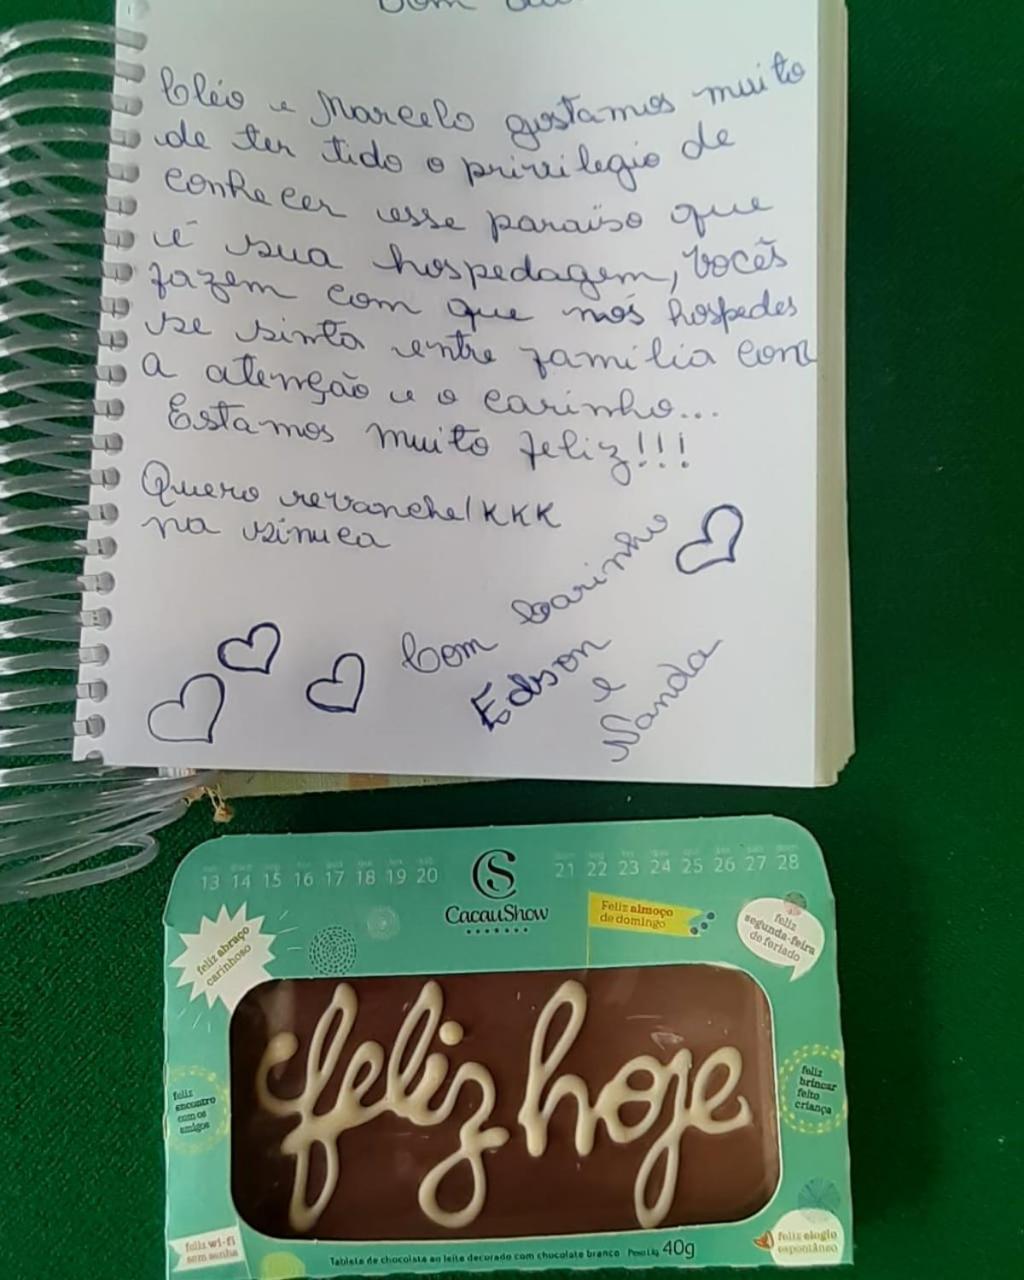 Bom dia
Cléo e Marcelo gostamos muito
de ter tido o privilegio de
conhecer esse paraiso que
é sua hospedagem, vocês
fazem com que nós hospedes
se sinta entre família com
a atenção e o carinho...
Estamos muito feliz!!!
Quero revanche/KKK
na sinuca
Com Carinho
Edson
e
Nanda
13 14 15 16 17 18 19 20
21 22 23 24 25 26 27 28
CS
CacauShow
Feliz almoço
de domingo
feliz
segunda-feira
de feriado
feliz abraço
carinhoso
feliz hoje
feliz
encontro
com os
amigos
feliz
brincar
feito
criança
feliz wi-fi
sem senha
feliz elogio
espontâneo
Tablete de chocolate ao leite decorado com chocolate branco Peso Líq. 40g